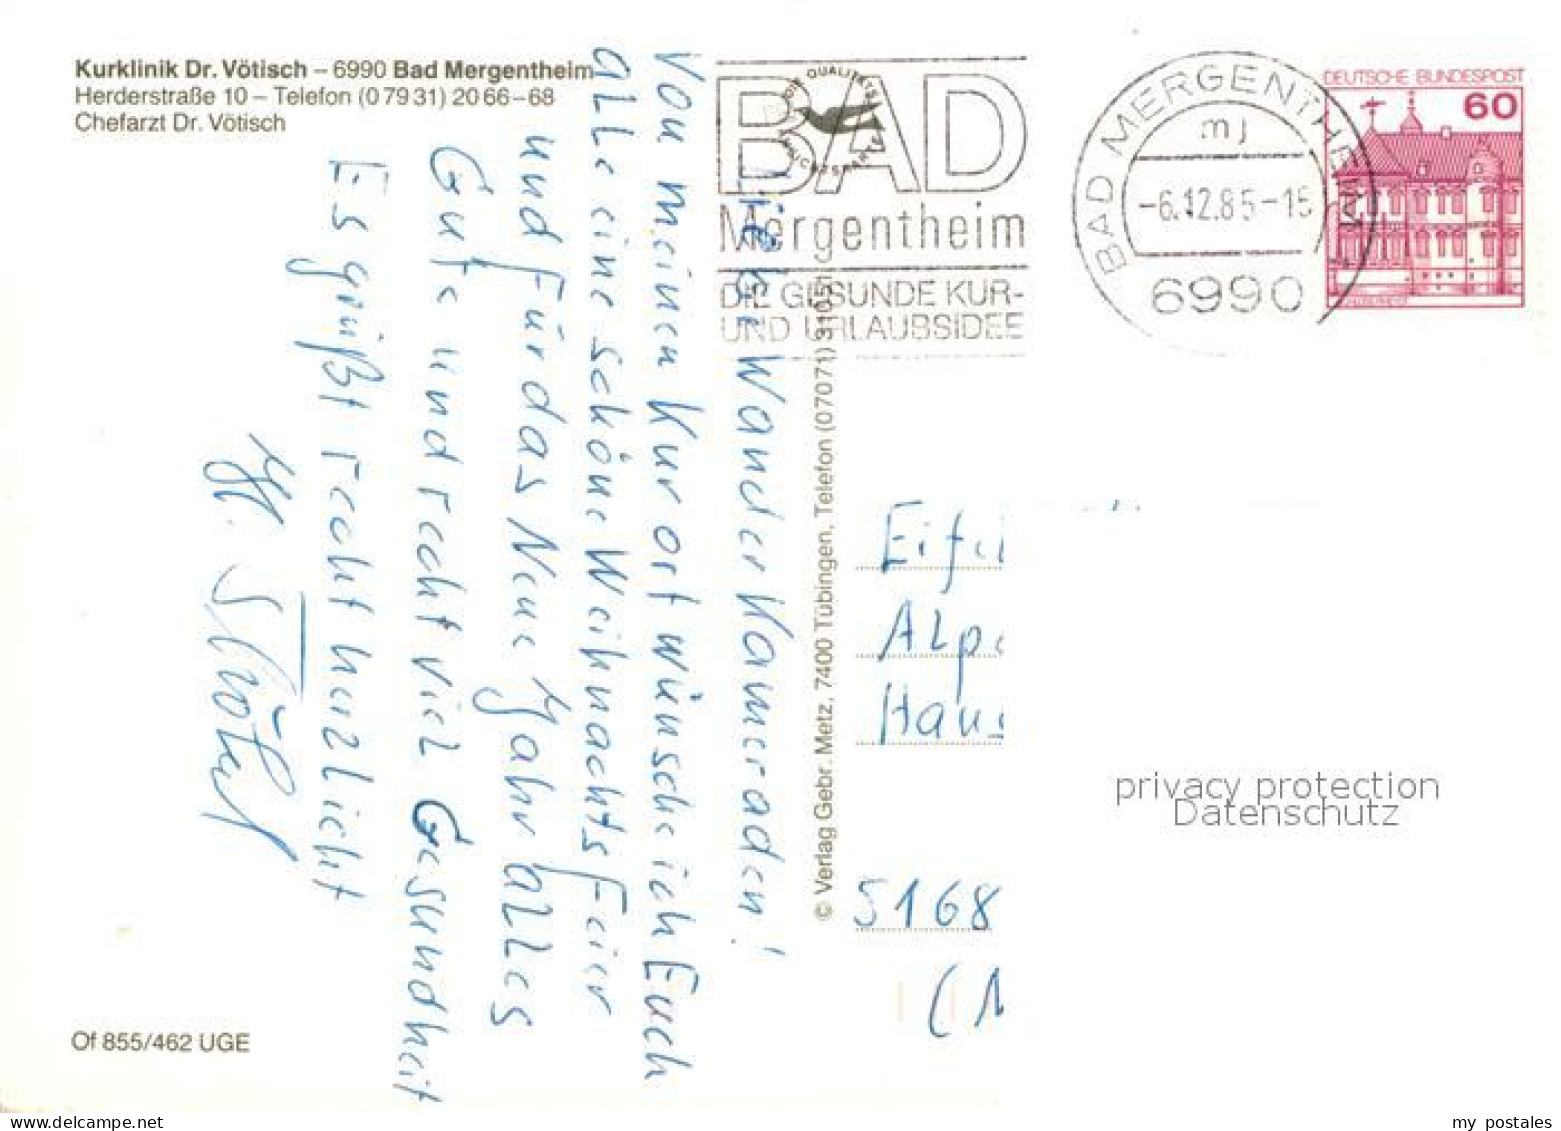 Kurklinik Dr. Vötisch – 6990 Bad Mergentheim
Herderstraße 10 – Telefon (0 79 31) 20 66 – 68
Chefarzt Dr. Vötisch
BAD
Mergentheim
DIE GESUNDE KUR-
UND URLAUBSIDEE
BAD MERGENTHEIM 1
mj
-6.12.85-15
6990
DEUTSCHE BUNDESPOST
60
Liebe Wander Kameraden!
Von meinen Kurort wünsche ich Euch
alle eine schöne Weihnachtsfeier
und für das Neue Jahr alles
Gute und recht viel Gesundheit
Es grüßt recht herzlicht
© Verlag Gebr. Metz, 7400 Tübingen, Telefon (07071) 31051
Eifel
Alpe
Haus
5168
privacy protection
Datenschutz
Of 855/462 UGE
my postales